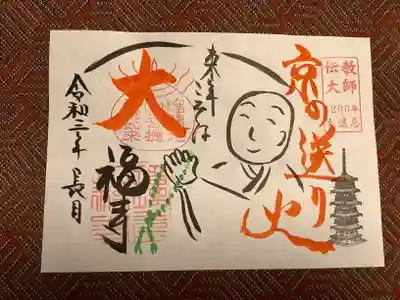 京の送り火
伝教大師
1200年
大遠忌
来年
こそは
大
福寺
令和三年 長月